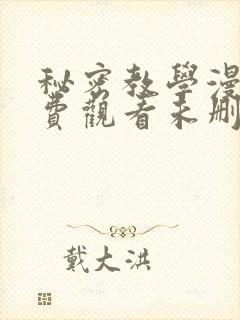 秘密教學漫
費觀看未刪
戴大洪